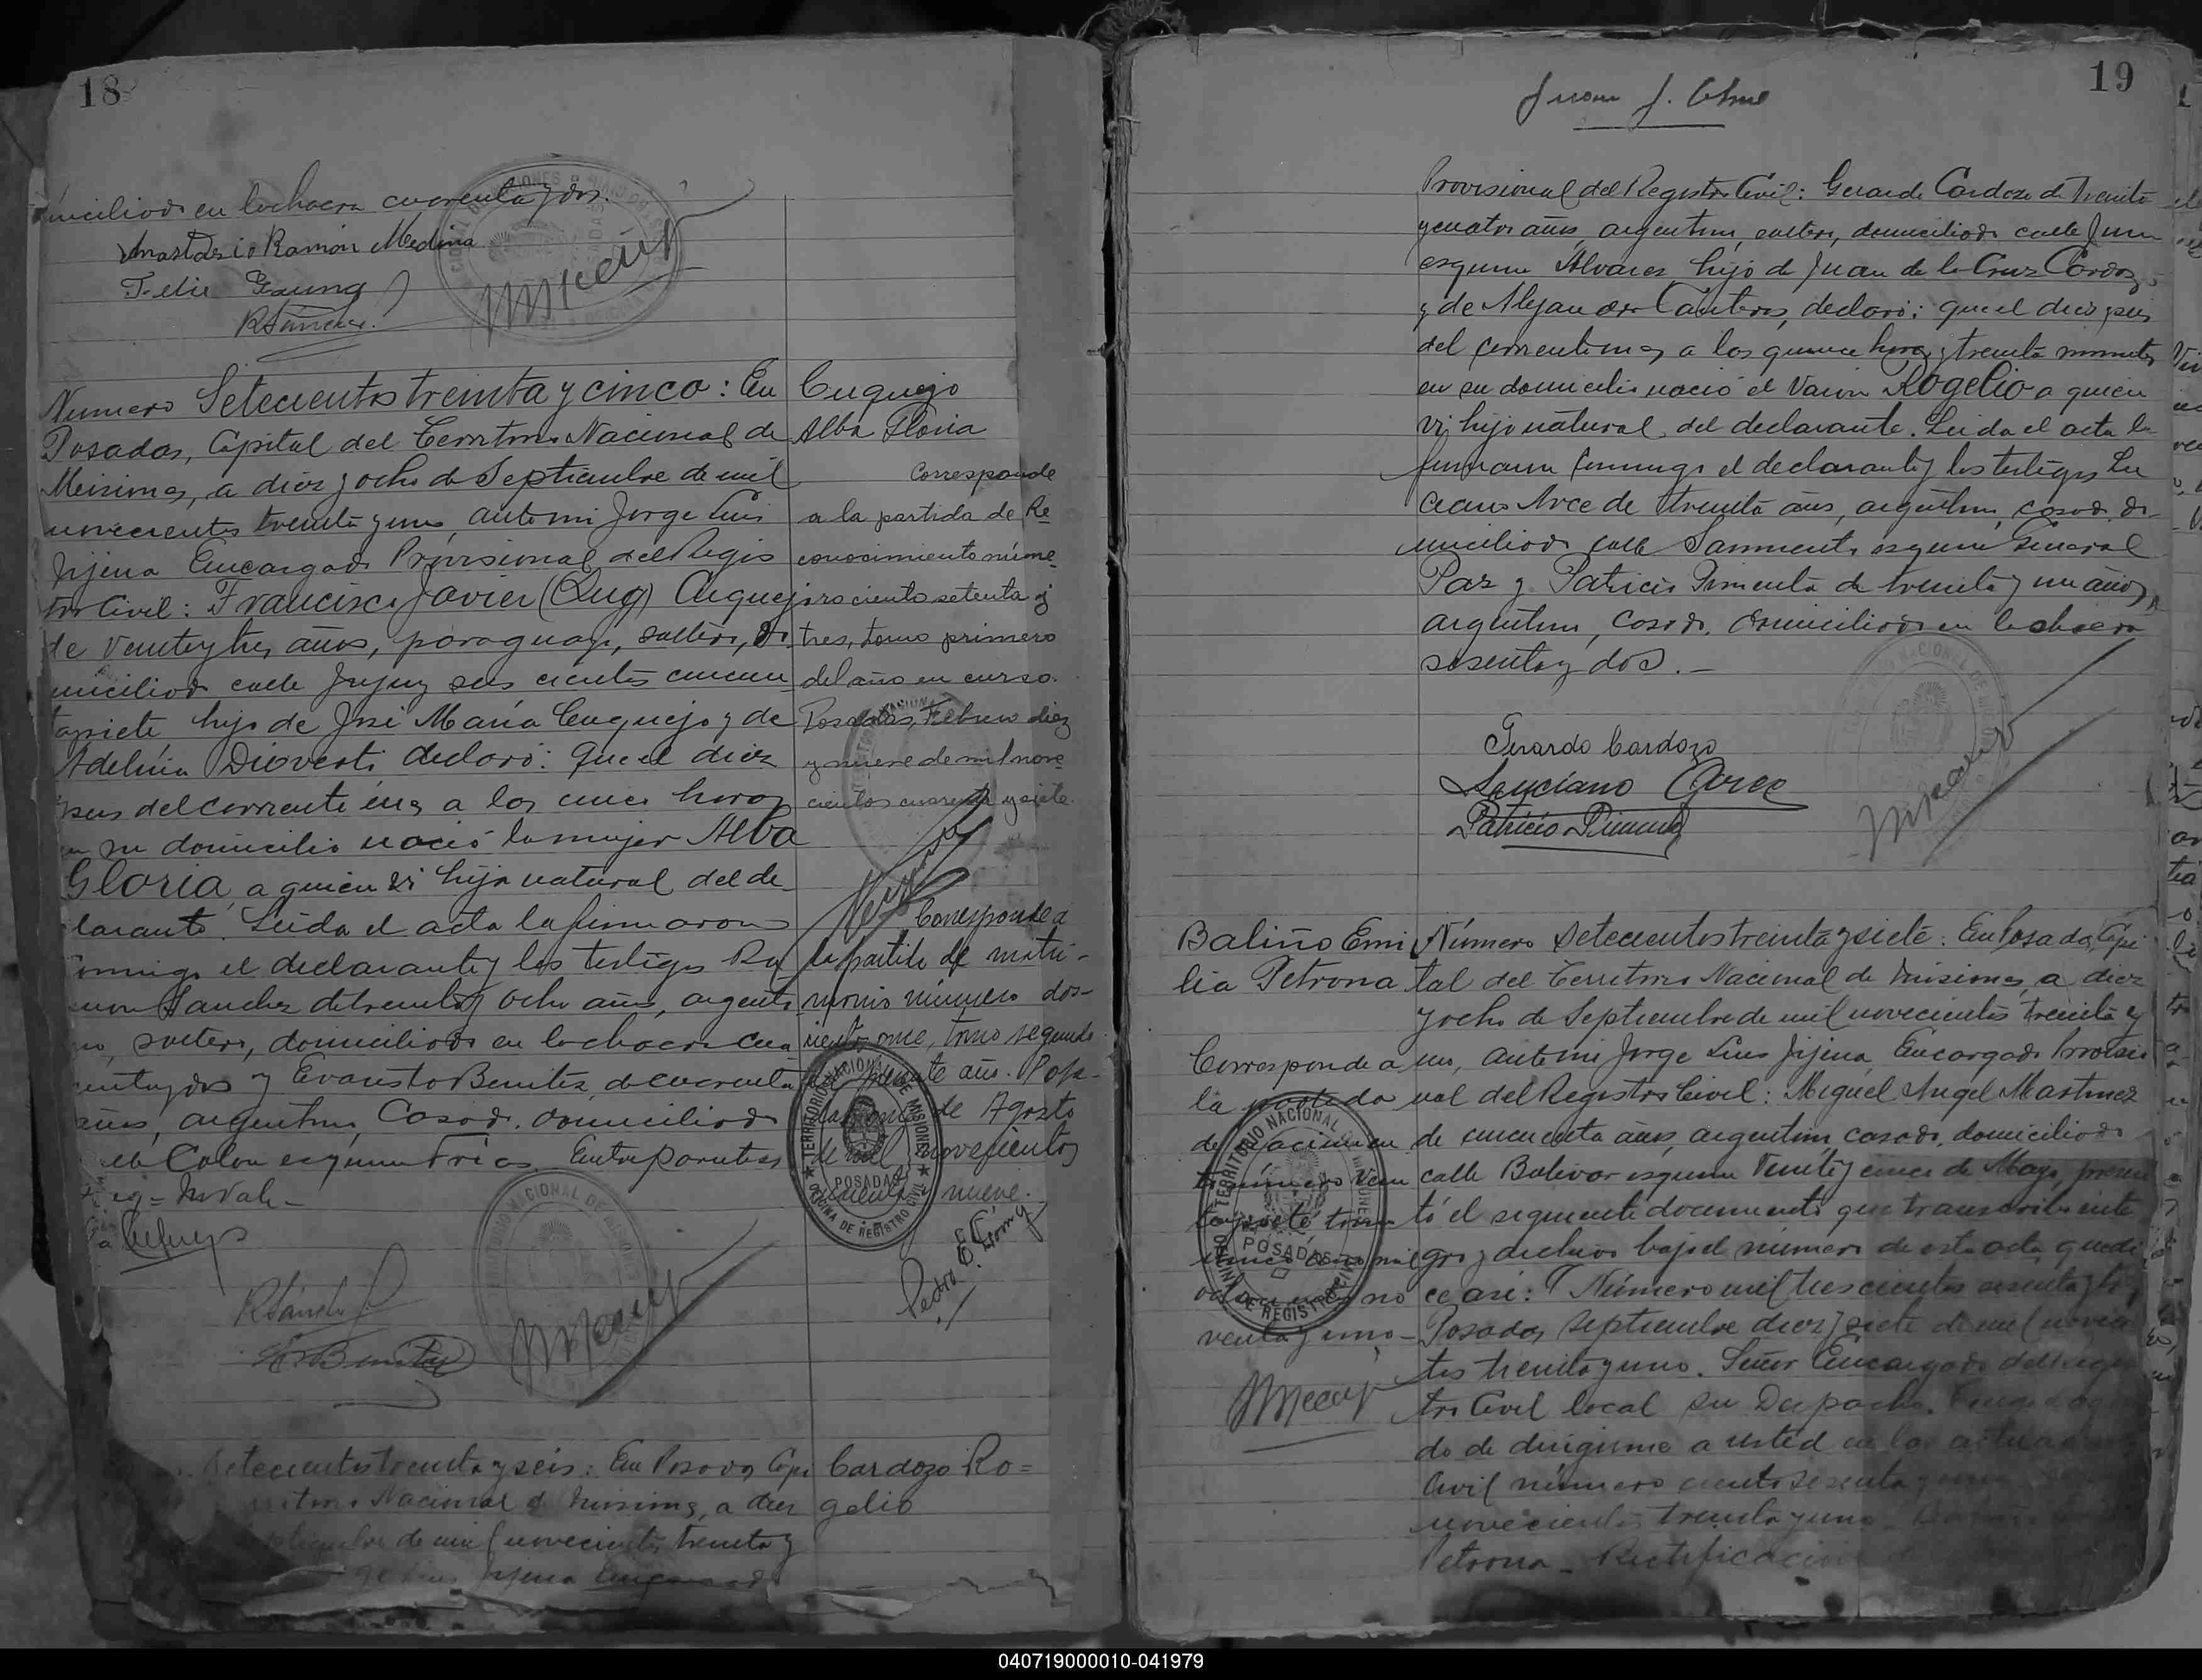 18
domiciliado en la chacra cuarenta y dos.
Anastasio Ramón Medina
Felix
RSánchez
Numero Setecientos treinta y cinco: En
Posadas, Capital del Territorio Nacional de
Misiones, a diez y ocho de Septiembre de mil
novecientos treinta y uno, ante mi Jorge Luis
Jijena Encargado Provisional del Regis
tro Civil: Francisco Javier (Qug) Cuquejo
de veinte y tres años, paraguayo, soltero, do
miciliado calle Jujuy seis cientos cincuen
ta y siete hijo de José María Cuquejo y de
Adelina Dioverti declaró: que el diez
y seis del corriente mes a las cinco horas
en su domicilio nació la mujer Alba
Gloria, a quien vi hija natural del de
clarante. Leida el acta la firmaron
conmigo el declarante y los testigos Ra
mon Sanchez de treinta y ocho años, argenti
no, soltero, domiciliado en la chacra cua
renta y dos y Evaristo Benitez, de cuarenta
años, argentino, casado, domiciliado
calle Colon esquina Frias. Entre parentesis
No Vale
RSánchez
EBenitez
Cuquejo
Alba Gloria
Corresponde
a la partida de Re
conocimiento núme
ro ciento setenta y
tres, tomo primero
del año en curso.
Posadas, Febrero diez
y nueve de mil nove
cientos cuarenta y siete.
Corresponde a
la partida de matri-
monio número dos-
cientos once, tomo segundo
del presente año. Posa-
das, once de Agosto
de mil novecientos
cincuenta y nueve.
TERRITORIO NACIONAL DE MISIONES
POSADAS
OFICINA DE REGISTRO CIVIL
Setecientos treinta y seis: En Posadas Capi
Territorio Nacional de Misiones, a diez
Septiembre de mil novecientos treinta y
Jorge Luis Jijena Encargado
Cardozo Ro=
gelio
19
Juan J.
Provisional del Registro Civil: Gerardo Cardozo de treinta
y cuatro años, argentino, soltero, domiciliado calle Junin
esquina Alvarez hijo de Juan de la Cruz Cardozo
y de Alejandra Canteros, declaró: que el diez y seis
del corriente mes a las quince horas y treinta minutos
en su domicilio nació el varon Rogelio a quien
vi hijo natural del declarante. Leida el acta la
firmaron conmigo el declarante y los testigos Lu
ciano Arce de treinta años, argentino, casado, do
miciliado calle Sarmiento esquina General
Paz y Patricio Pimenta de treinta y un años,
argentino, casado, domiciliado en la chacra
sesenta y dos.-
Gerardo Cardozo
Luciano Arce
Patricio
Baliño Emi
lia Petrona
Corresponde a
la partida
de nacimien
to número vein
ta y siete tomo
único año mil
ochocientos no
venta y uno-
TERRITORIO NACIONAL
POSADAS
DE REGISTRO CIVIL
Número Setecientos treinta y siete: En Posadas, Capi
tal del Territorio Nacional de Misiones, a diez
y ocho de Septiembre de mil novecientos treinta y
uno, ante mi Jorge Luis Jijena, Encargado Provisio
nal del Registro Civil: Miguel Angel Martinez
de cincuenta años, argentino, casado, domiciliado
calle Bolivar esquina Veinte y cinco de Mayo, presen
tó el siguiente documento que transcribo inte
gro y archivo bajo el número de esta acta, y que di
ce asi: Número mil trescientos sesenta y
Posadas, Septiembre diez y siete de mil novecien
tos treinta y uno. Señor Encargado del Regis
tro Civil local Su Despacho. Tengo
do de dirigirme a usted en los
Civil número ciento sesenta y
novecientos treinta y uno
Petrona - Rectificacion
040719000010-041979